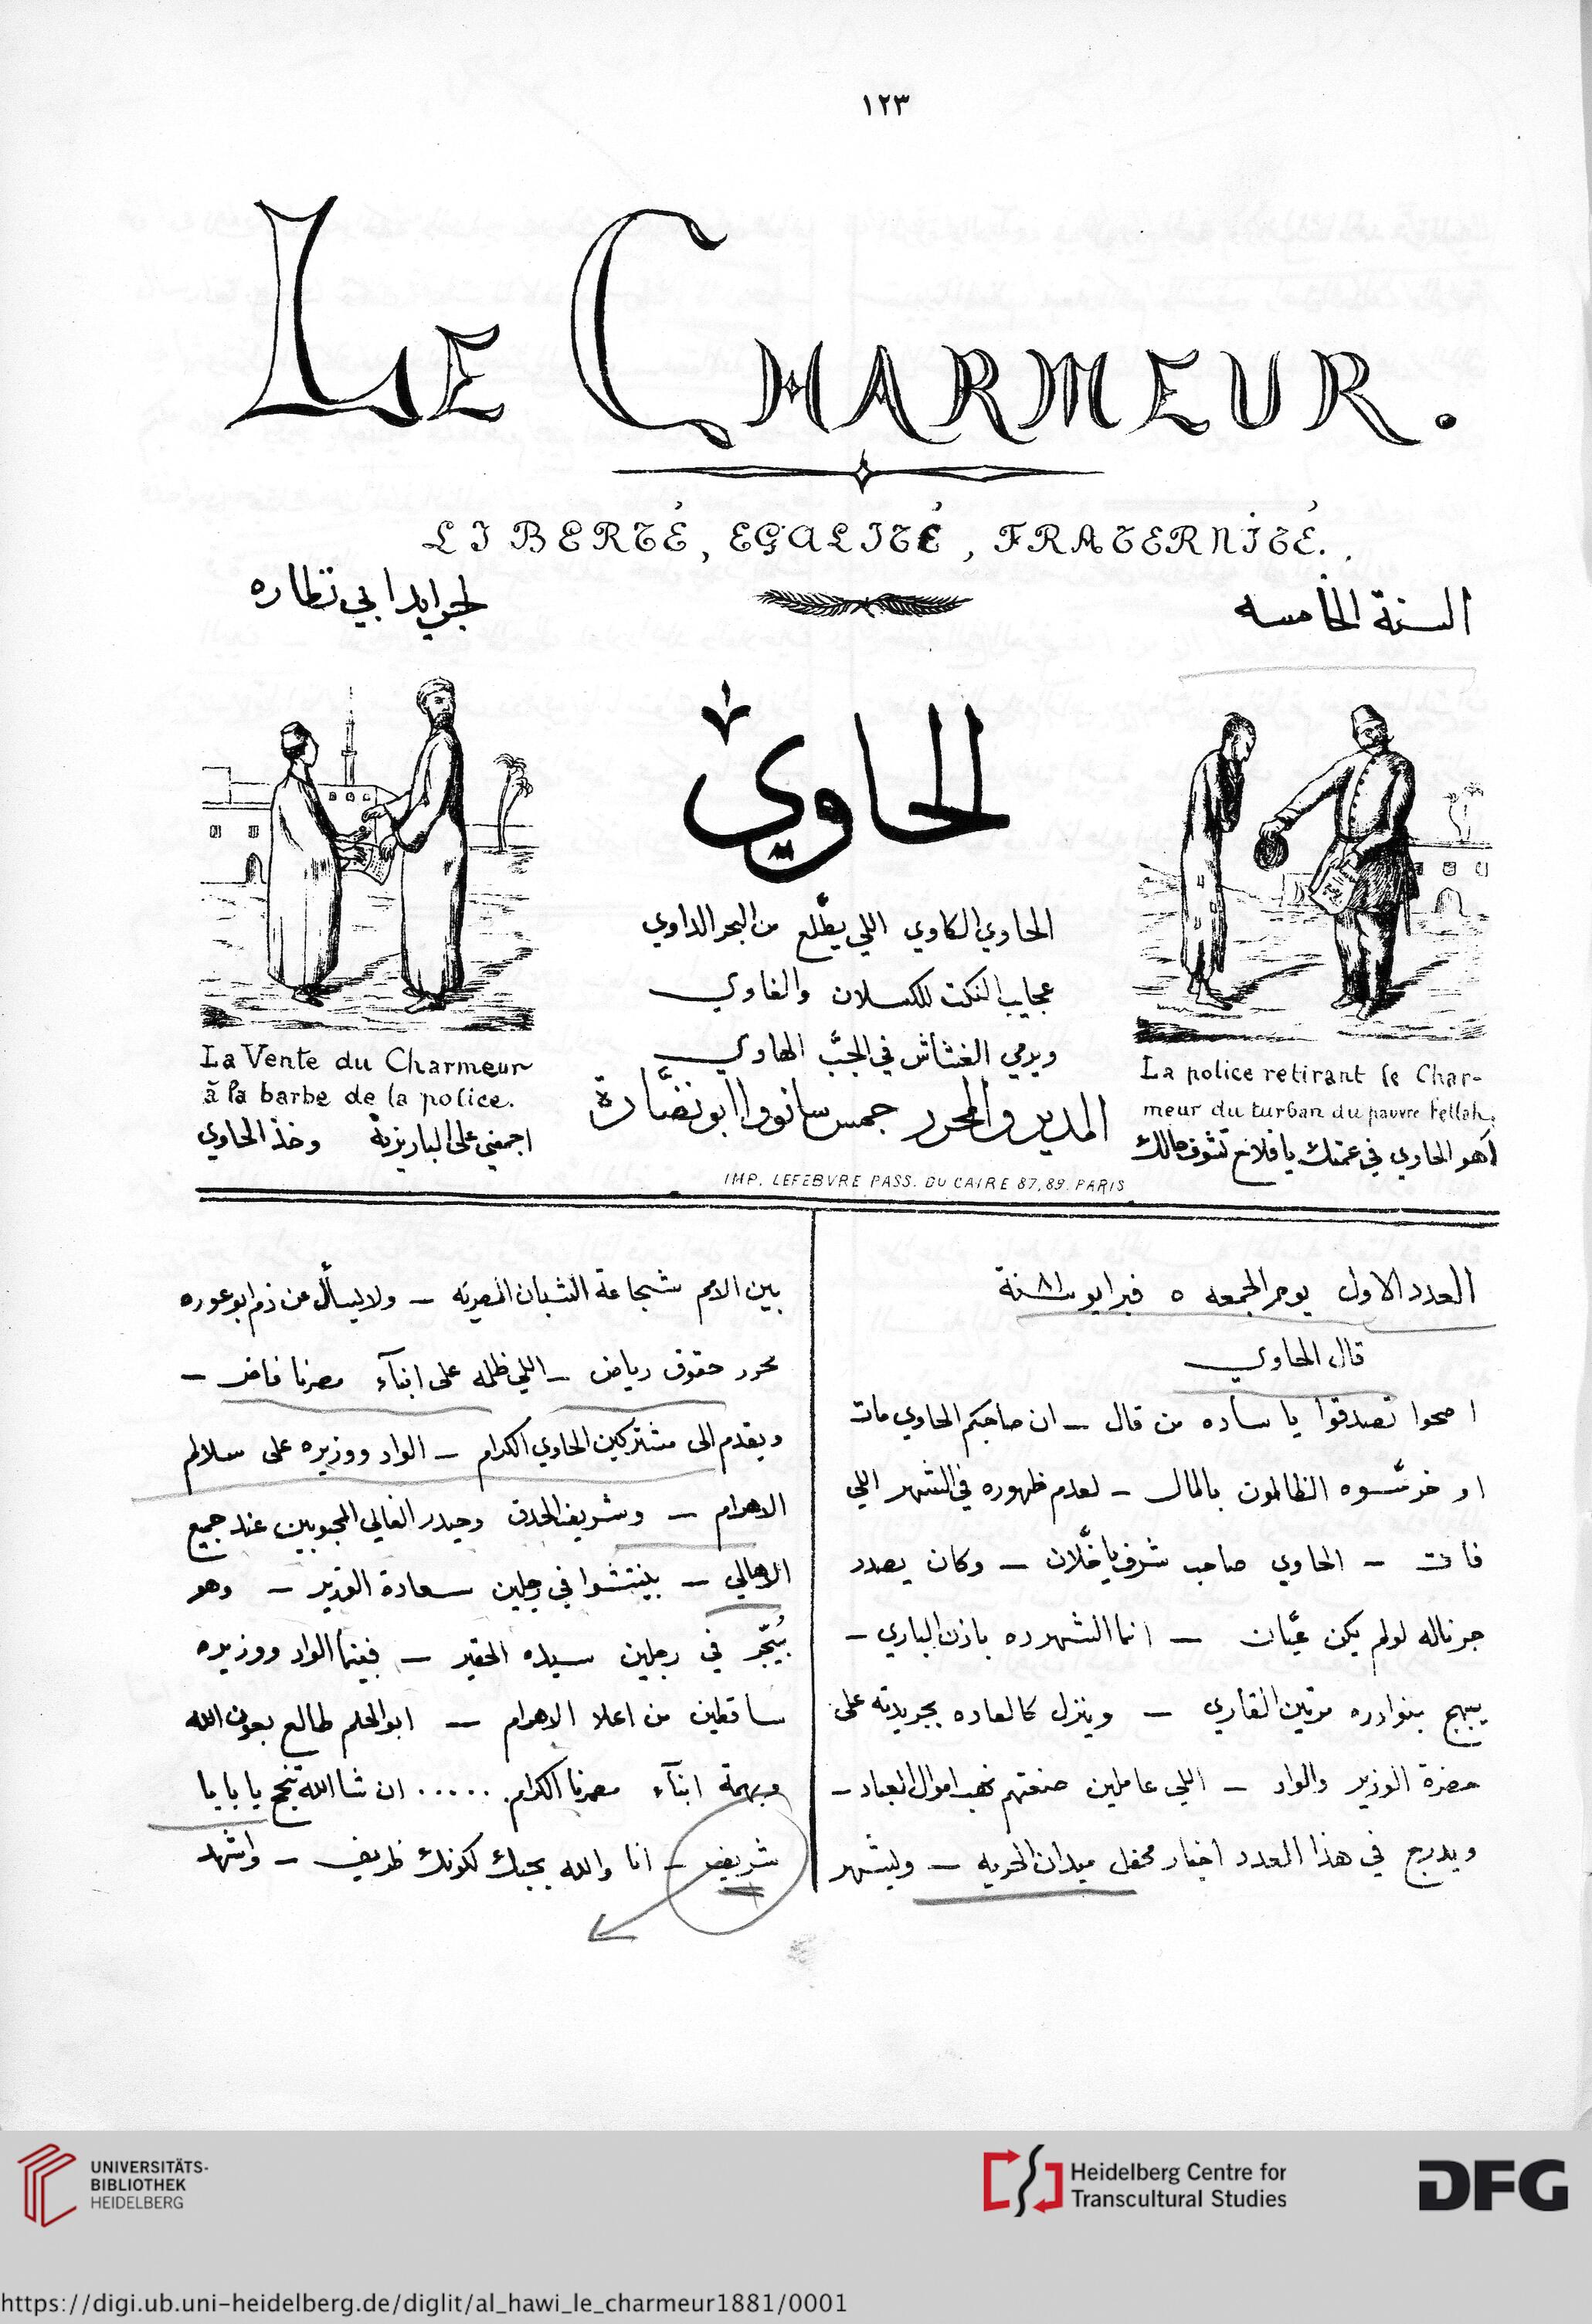 ١٢٣
LE CHARMEUR.
LIBERTÉ, EGALITÉ, FRATERNITÉ.
السنة الخامسه
لجرايد ابي نظاره
الحاوي
الحاوي الكاوي اللي يطّلع من البحر الداوي
عجايب النكت للكسلان والغاوي
ويرمي الغشاش في الجبّ الهاوي
المدير والمحرر جمس سانووا ابو نضّارة
IMP. LEFEBVRE PASS. DU CAIRE 87, 89. PARIS
La Vente du Charmeur
à la barbe de la police.
وخذ الحاوي
La police retirant le Char-
meur du turban du pauvre Fellah.
اهو الحاوي في عمتك يا فلاح تشوف مالك
العدد الاول يوم الجمعه ٥ فبرايو سنة ٨١
قال الحاوي
اصحوا تصدقوا يا ساده من قال – ان صاحبكم الحاوي مات
او خرسّوه الظالمون بالمال – لعدم ظهوره في الشهر اللي
فات – الحاوي صاحب شرف يا خلّان – وكان يصدر
جرناله لولم يكن عيّان – انما الشهر ده باذن الباري –
يبهج بنوادره مرتين القاري – وينزل كالعاده بجريدته على
حضرة الوزير والواد – اللي عاملين صنعتهم نهب اموال العباد –
ويدرج في هذا العدد اخبار محفل ميدان الحريه – وليشهر
بين الامم شجاعة الشبان المصريه – ولا يسأل عن ذم ابو عوره
محرر حقوق رياض – اللي ظلمه على ابنآء مصرنا فاض –
ويقدم الى مشتركين الحاوي الكرام – الواد ووزيره على سلالم
الاهرام – وشريف الحدق وحيدر الغالي المحبوبين عند جميع
الاهالي – بينتشوا في رجلين سعادة الوزير – وهو
بُيَجّر في رجلين سيده الحقير – فبقىا الواد ووزيره
ساقطين من اعلا الاهرام – ابو الحلم طالع بعون الله
وبهمة ابنآء مصرنا الكرام ..... ان شا الله تنجح يا بابا
شريف – انا والله بحبك لكونك ظريف – واشهد
UNIVERSITÄTS-
BIBLIOTHEK
HEIDELBERG
Heidelberg Centre for
Transcultural Studies
DFG
https://digi.ub.uni-heidelberg.de/diglit/al_hawi_le_charmeur1881/0001